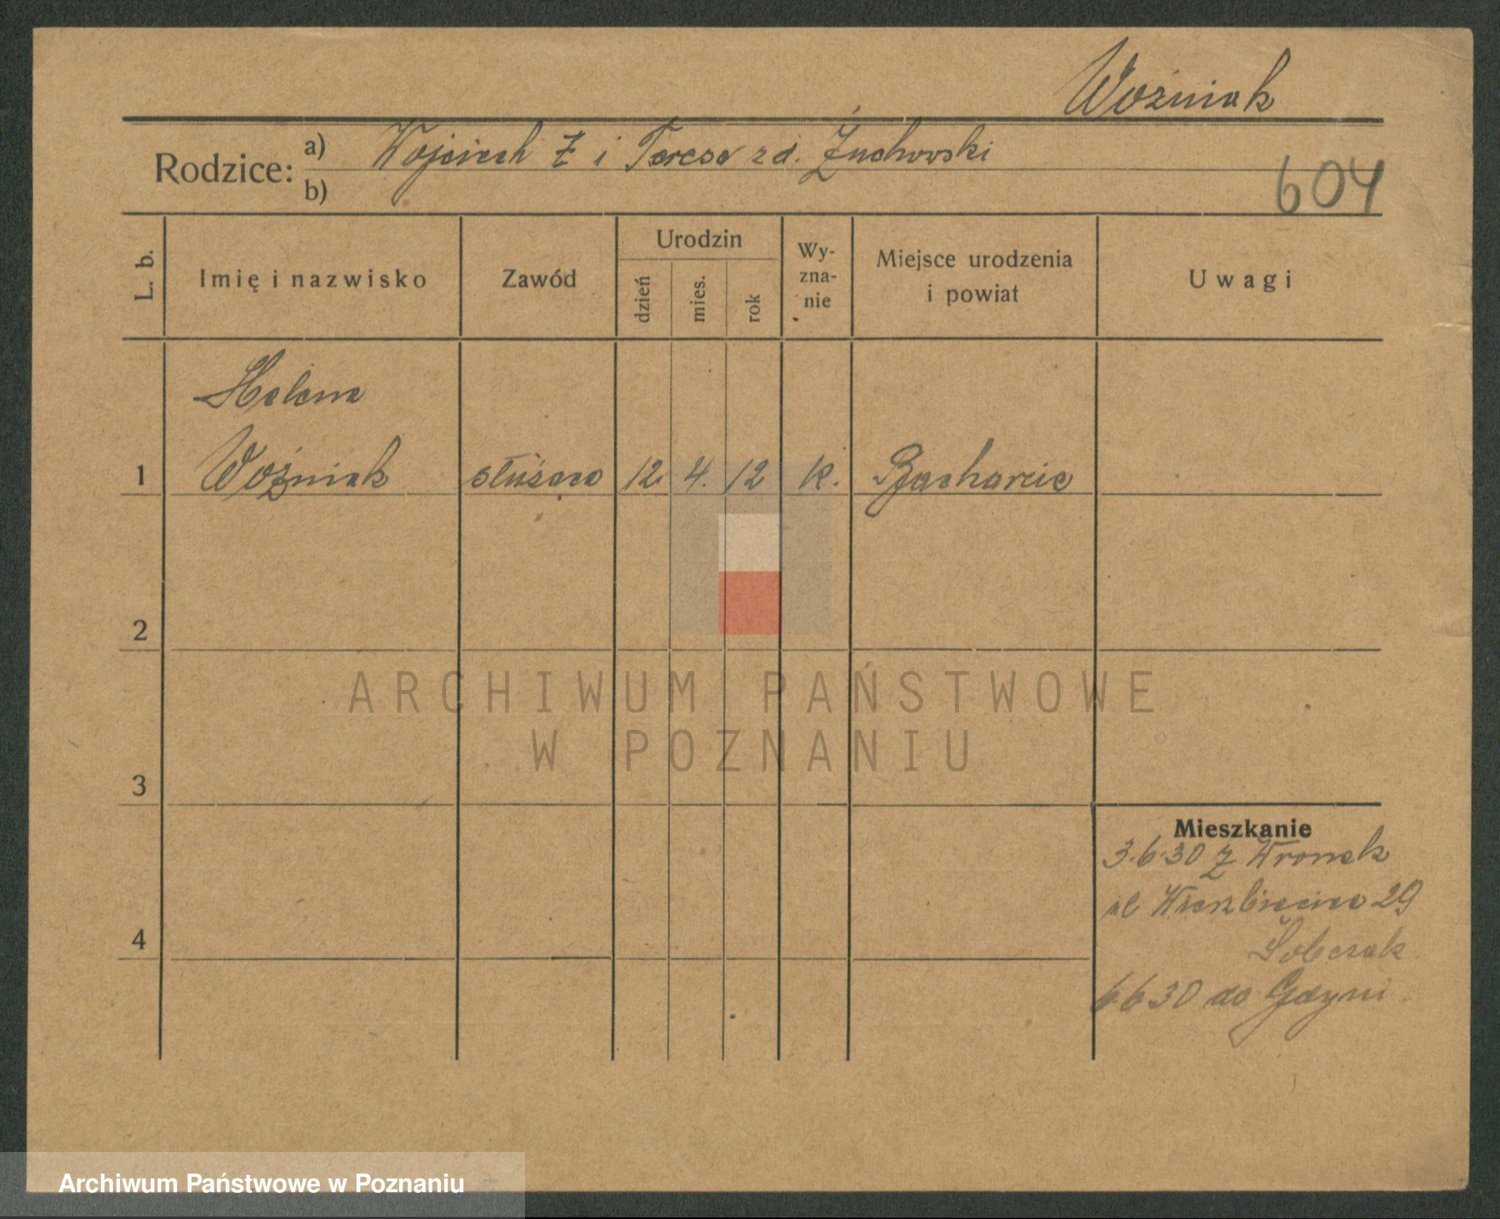 Woźniak
Rodzice: a) Wojciech Ł i Teresa zd. Żuchowski
b)
604
L. b.
Imię i nazwisko
Zawód
Urodzin
dzień
mies.
rok
Wy-
zna-
nie
Miejsce urodzenia
i powiat
Uwagi
Helena
1 Woźniak służąca 12. 4. 12 k.
2
ARCHIWUM PAŃSTWOWE
W POZNANIU
3
Mieszkanie
3.6.30 z Wronek
ul Wierzbięcice 29
Sobczak
4
6 6 30 do Gdyni
Archiwum Państwowe w Poznaniu